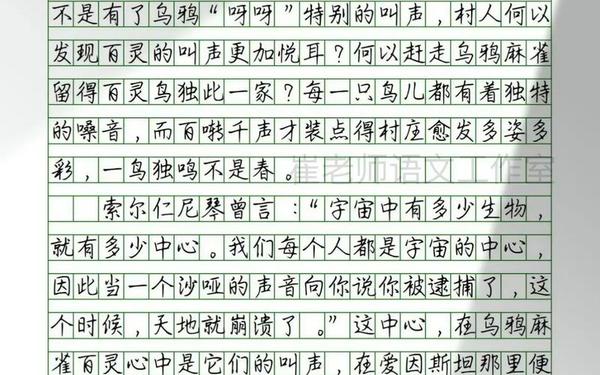 不是有了乌鸦“呀呀”特别的叫声，村人何以
发现百灵的叫声更加悦耳？何以赶走乌鸦麻雀
留得百灵鸟独此一家？每一只鸟儿都有着独特
的嗓音，而百啭千声才装点得村庄愈发多姿多
彩，一鸟独鸣不是春。
崔老师语文工作室
索尔仁尼琴曾言：“宇宙中有多少生物，
就有多少中心。我们每个人都是宇宙的中心，
因此当一个沙哑的声音向你说你被逮捕了，这
个时候，天地就崩溃了。”这中心，在乌鸦麻
雀百灵心中是它们的叫声，在爱因斯坦那里便